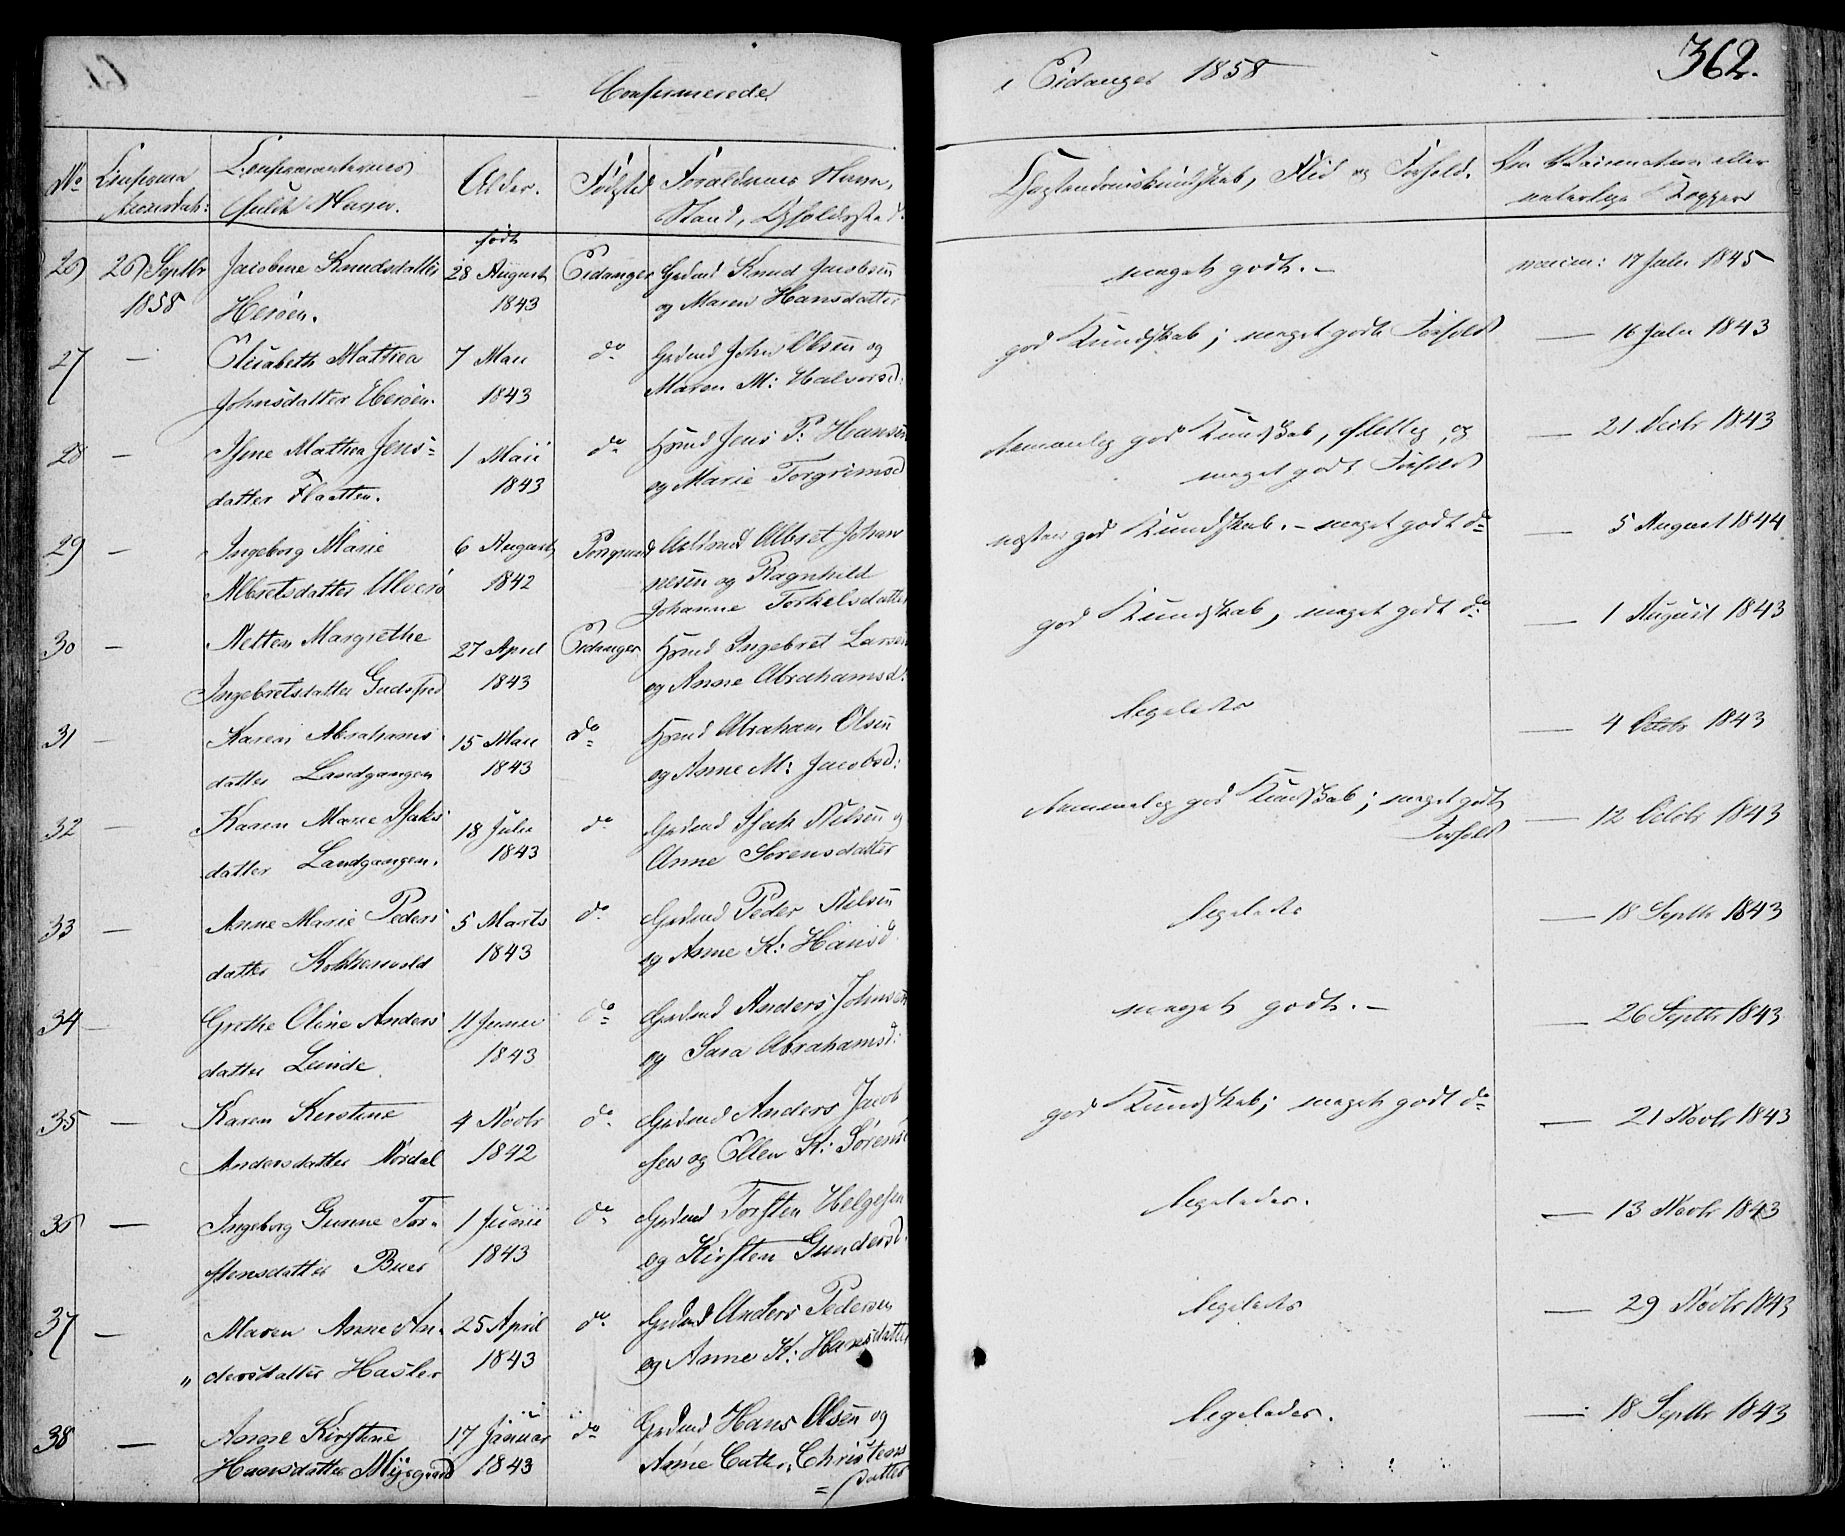 Confirmerede
i Eidanger 1858
362.
No
Confirma
tionsdat:
Confirmanternes
fulde Navn.
Alder.
Fødsted
Forældrenes Navn,
Stand, Opholdssted.
Christendomskundskab, Flid og Forhold.
naturlige Kopper
26
26 Septbr
1858
Jacobine Knudsdatter
Herøen.
født
28 August
1843
Eidanger
Grdmd Knud Jacobsen
og Maren Hansdatter
meget godt. –
vaccin: 17 Juli 1845
27
–
Elisabeth Mathea
Johnsdatter Herøen.
7 Mai
1843
do
Grdmd John Olsen og
Maren M: Halvorsd:
god Kundskab; meget godt Forhold
— 16 Juli 1843
28
–
Isene Mathea Jens=
datter Flaatten.
1 Maii
1843
do
Hsmd Jens P: Hansen
og Marie Torgrimsd
temmelig god Kundskab, flittig, og
meget godt Forhold
— 21 Decbr 1843
29
–
Ingeborg Marie
Albretsdatter Ulverø
6 August
1842
Porsgrund
Albret Johan
nesen og Ragnhild
Johanne Torkelsdatter
næsten god Kundskab. – meget godt do
— 5 August 1844
30
–
Netten Margrethe
Ingebretsdatter Gudsfred
27 April
1843
Eidanger
Hsmd Ingebret Larsen
og Anne Abrahamsd:
god Kundskab, meget godt do
— 1 August 1843
31
–
Karen Abrahams
datter Landgangen
15 Mai
1843
do
Hsmd Abraham Olsen
og Anne M: Jacobsd:
ligeledes
— 4 Octbr 1843
32
–
Karen Marie Isaks
datter Landgangen.
18 Julii
1843
do
Grdmd Isak Nilsen og
Anne Sørensdatter
temmelig god Kundskab; meget godt
Forhold
— 12 Octbr 1843
33
–
Anne Marie Peders
datter Kokkersvold
5 Marts
1843
do
Grdmd Peder Nilsen
og Anne K: Hansd
ligeledes
— 18 Septbr 1843
34
–
Grethe Oline Anders
datter Lunde.
11 Junii
1843
do
Grdmd Anders Johnsen
og Sara Abrahamsd:
meget godt. –
— 26 Septbr 1843
35
–
Karen Kirstine
Andersdatter Nørdal
4 Novbr
1842
do
Grdmd Anders Jacob
sen og Ellen K: Sørens
god Kundskab; meget godt do
— 21 Novbr 1843
36
–
Ingeborg Gunne Tor=
stensdatter Buer
1 Junii
1843
do
Grdmd Torsten Helgesen
og Kirsten Gundersd.
ligeledes.
— 13 Novbr 1843
37
–
Maren Anne An=
dersdatter Hasler
25 April
1843
do
Grdmd Anders Pedersen
og Anne K: Hansdatter
ligeledes
— 29 Novbr 1843
38
–
Anne Kirstine
Hansdatter
17 Januar
1843
do
Grdmd Hans Olsen og
Anne Cath: Christens
= datter
ligeledes.
— 18 Septbr 1843